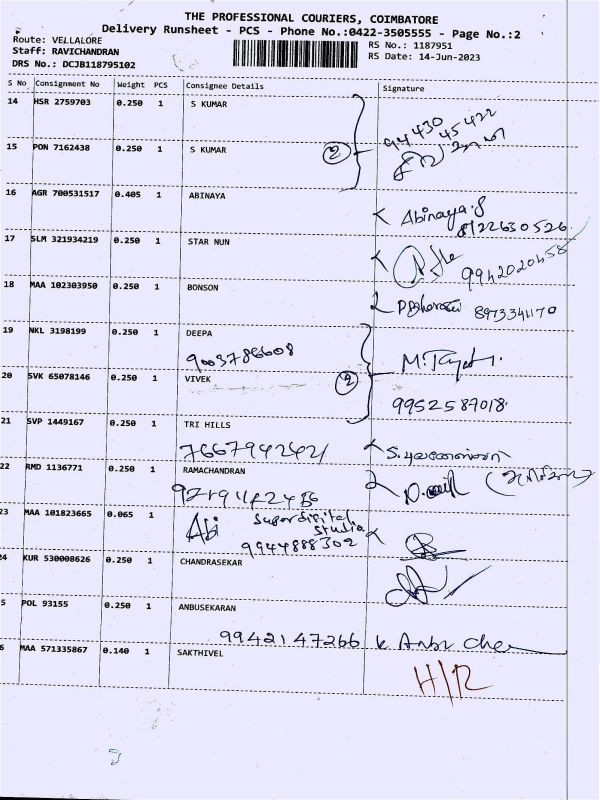 THE PROFESSIONAL COURIERS, COIMBATORE
Delivery Runsheet - PCS - Phone No.:0422-3505555 - Page No.:2
Route: VELLALORE
Staff: RAVICHANDRAN
DRS No.: DCJB118795102
RS No.: 1187951
RS Date: 14-Jun-2023
S No Consignment No Weight PCS Consignee Details Signature
14 HSR 2759703 0.250 1 S KUMAR
94430 45422
15 PON 7162438 0.250 1 S KUMAR
2
16 AGR 700531517 0.405 1 ABINAYA
Abinaya.S
8122630526
17 SLM 321934219 0.250 1 STAR NUN
9942020458
18 MAA 102303950 0.250 1 BONSON
8973341170
19 NKL 3198199 0.250 1 DEEPA
9003786608
20 SVK 65078146 0.250 1 VIVEK
2
9952587018
21 SVP 1449167 0.250 1 TRI HILLS
7667942421
22 RMD 1136771 0.250 1 RAMACHANDRAN
23 MAA 101823665 0.065 1
Abi Super digital
Studio
9944888302
24 KUR 530008626 0.250 1 CHANDRASEKAR
5 POL 93155 0.250 1 ANBUSEKARAN
9942147266
6 MAA 571335867 0.140 1 SAKTHIVEL
H/R